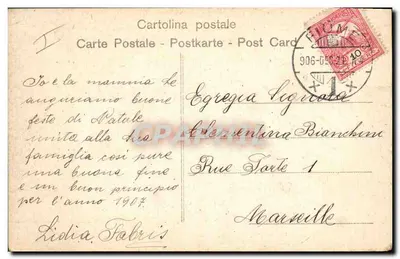 Cartolina postale
Carte Postale - Postkarte - Post Card
FIUME
906-DEC.22
1
Io e la mamma le
auguriamo buone
feste di Natale
unita alla sua
famiglia così pure
una buona fine
e un buon principio
per l'anno 1907
Lidia Fabris
Egregia Signora
Clementina Bianchini
Rue Forte 1
Marseille